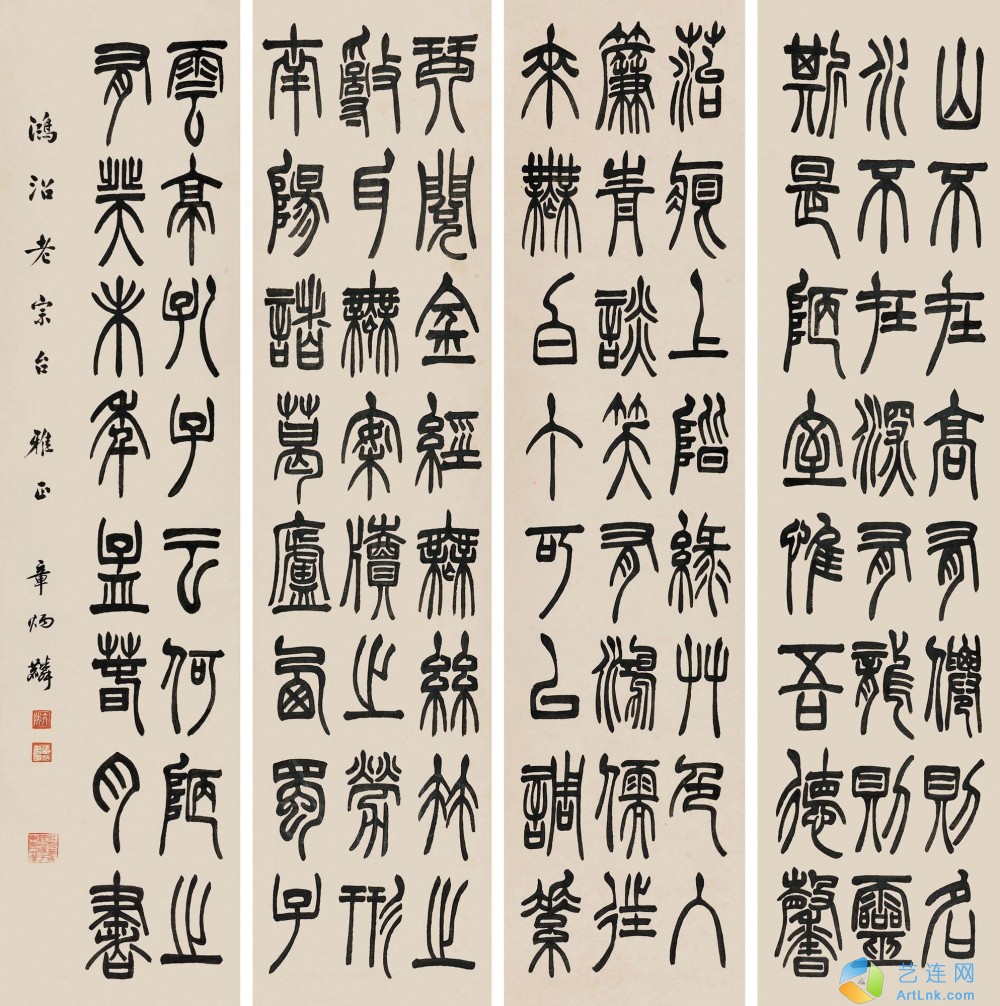 山不在高有僊則名
水不在深有龍則靈
斯是陋室惟吾德馨
菭痕上階綠艸色入
簾青談笑有鴻儒往
來無白丁可以調素
琴閱金經無絲竹之
亂耳無案牘之勞形
南陽諸葛廬西蜀子
雲亭孔子云何陋之
有癸未年孟春月書
鴻沼老宗台 雅正 章炳麟
艺连网
ArtLnk.com